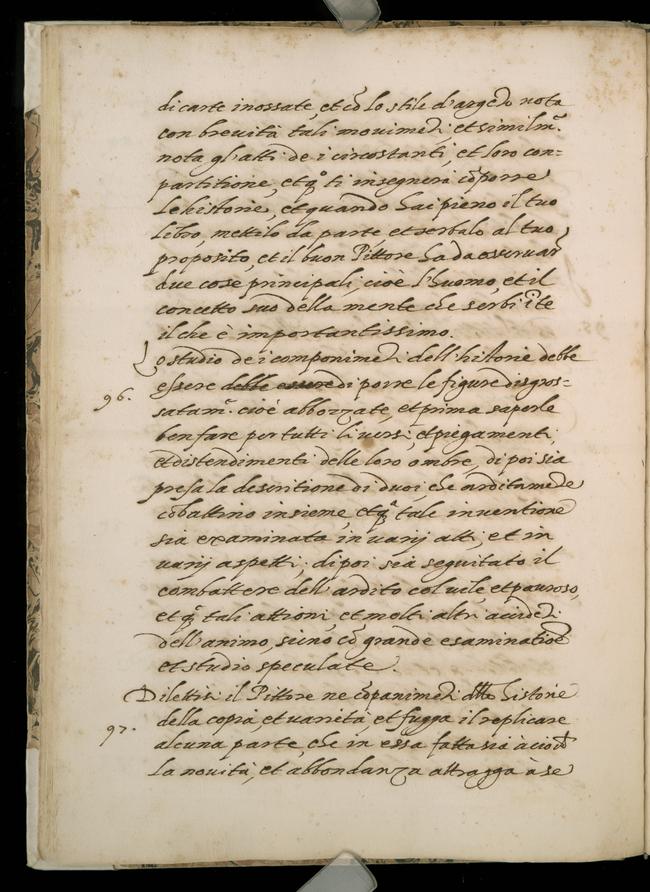 di carte inossate, et cō lo stile d'argēto nota
con brevità tali movimēti: et similmᵉ.
nota gl'atti de i circostanti, et loro con=
partitione, et qº ti insegnerà cōporre
le historie, et quando hai pieno il tuo
libro, mettilo da parte, et serbalo al tuo
proposito, et il buon Pittore ha da osservar
due cose principali, cioè l'huomo, et il
concetto suo della mente che serbi ī te
il che è importantissimo.
Lo studio de i componimēti dell'historie debbe
96. essere debbe essere di porre le figure disgros=
satamᵉ. cioè abbozzate, et prima saperle
ben fare per tutti li versi, et piegamenti,
et distendimenti delle loro ombre, di poi sia
presa la descritione di duoi, che arditamēte
cōbattino insieme, et qª tale inventione
sia examinata in varij atti, et in
varij aspetti; di poi sia seguitato il
combattere dell'ardito col vile, et pauroso,
et qᵉ tali attioni et molti altri accidēti
dell'animo, sieno cō grande esaminatiōe
et studio speculate.
Dilettisi il Pittore ne cōponimēti dlle historie
97. della copia, et varietà, et fugga il replicare
alcuna parte, che in essa fatta sia acciochē
la novità, et abbondanza attragga à se